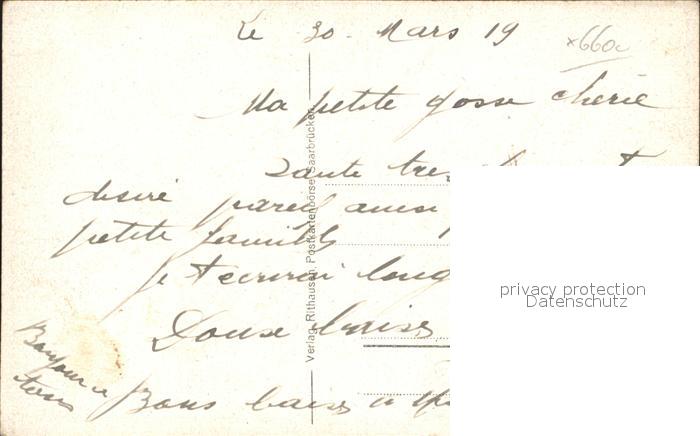 Le 30 - Mars 19
x660c
Ma petite gosse cherie
Sante tres
desiré pareil aussi
petite famille
je t'ecrirai long
Douse baises
Bons baises a
Bonjour a
tous
Verlag Rithausen, Postkartenbörse, Saarbrücken
privacy protection
Datenschutz